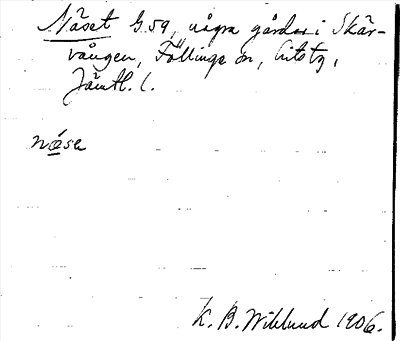 Näset G.59, några gårdar i Skär-
vången, Föllinge sn,
Jämtl. l.
næse
K. B. Wiklund 1906.